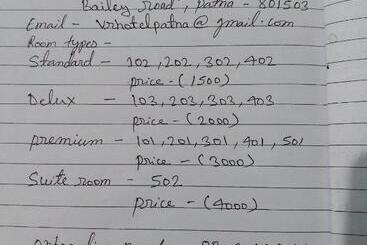 Bailey Road, Patna - 801503
Email - vrhotelpatna@gmail.com
Room types -
Standard - 102, 202, 302, 402
price - (1500)
Delux - 103, 203, 303, 403
price - (2000)
premium - 101, 201, 301, 401, 501
price - (3000)
Suite room - 502
price - (4000)